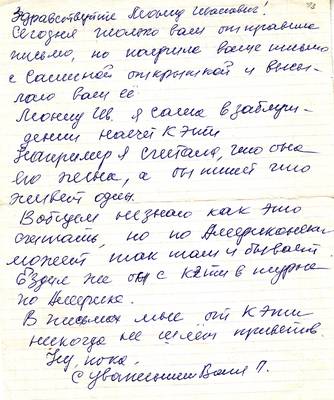 Здравствуйте Леонид Иванович!
Сегодня только вам отправила
письмо, но получила ваше письмо
с Сашиной открыткой и высы-
лаю вам её
Леонид Ив. я сама в заблуж-
дении насчёт Кэти
Например я считала, что она
его жена, а он пишет что
живет один.
Вобщем незнаю как это
считать, но по Американски
может так там и бывает.
Ездил же он с Кэти в турне
по Америке.
В письмах мне от Кэти
некогда не шлёт приветов.
Ну, пока.
С уважением Валя П.